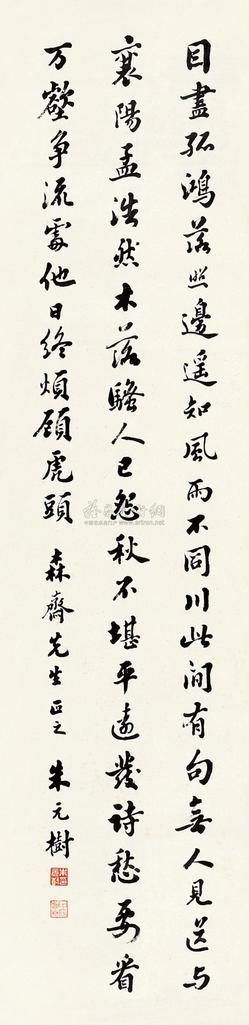 目盡孤鴻落照邊遥知風雨不同川此间有句無人見送与
襄陽孟浩然木落騷人已怨秋不堪平遠發詩愁要看
万壑争流處他日终煩顾虎頭
森齋先生正之 朱元樹